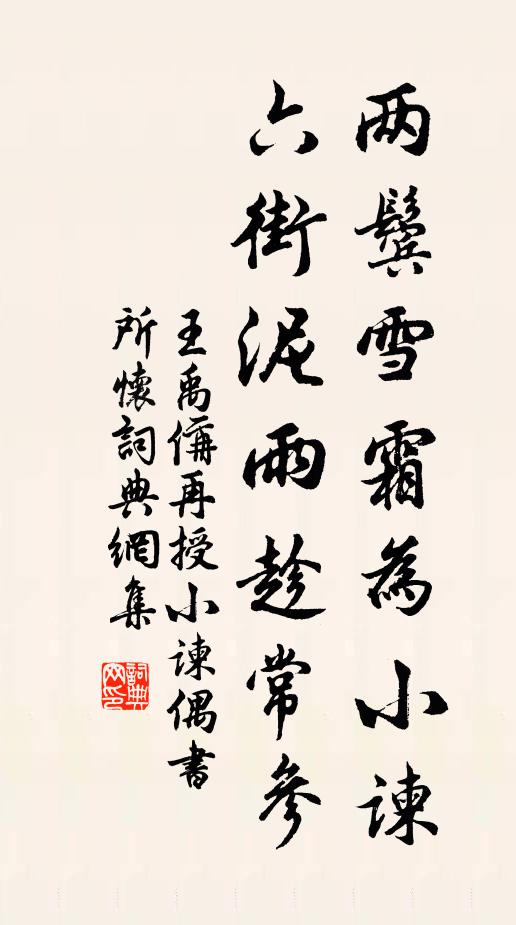 两鬓雪霜為小諫
六街泥雨趁常參
王禹偁再授小諫偶書
所懷詞典網集
詞典网印